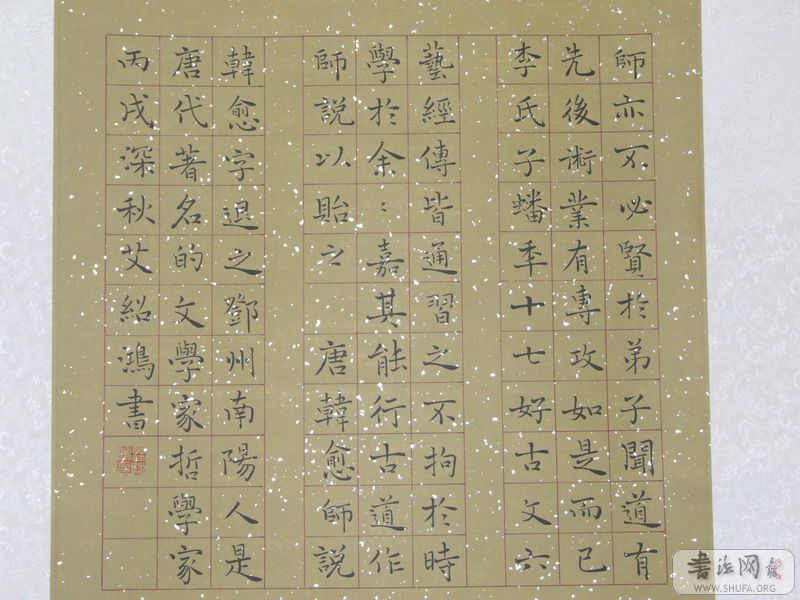 師亦不必賢於弟子聞道有
先後術業有專攻如是而已
李氏子蟠年十七好古文六
藝經傳皆通習之不拘於時
學於余:嘉其能行古道作
師說以貽之 唐韓愈師說
韓愈字退之鄧州南陽人是
唐代著名的文學家哲學家
丙戌深秋艾紹鴻書
書法网
WWW.SHUFA.ORG